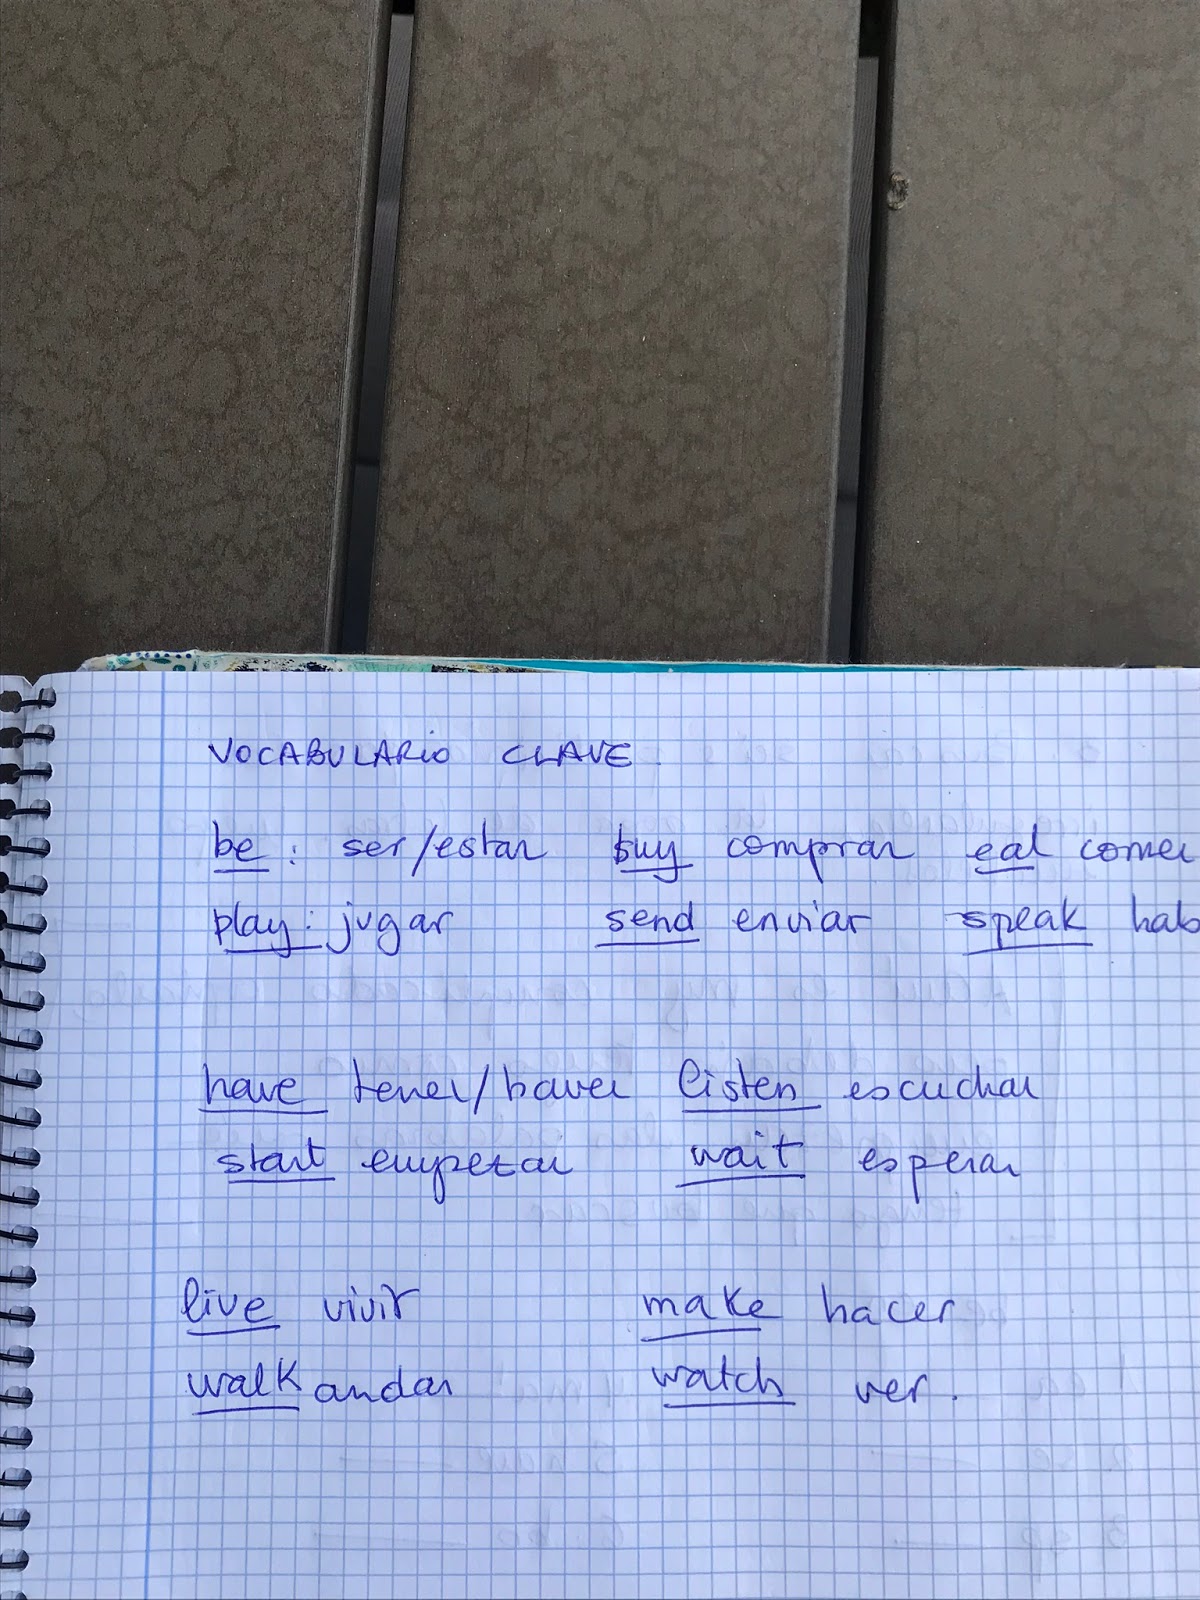 VOCABULARIO CLAVE.
be: ser/estar buy comprar eat comer
play: jugar send enviar speak hab
have tener/haver listen escuchar
start empezar wait esperar
live vivir make hacer
walk andar watch ver.